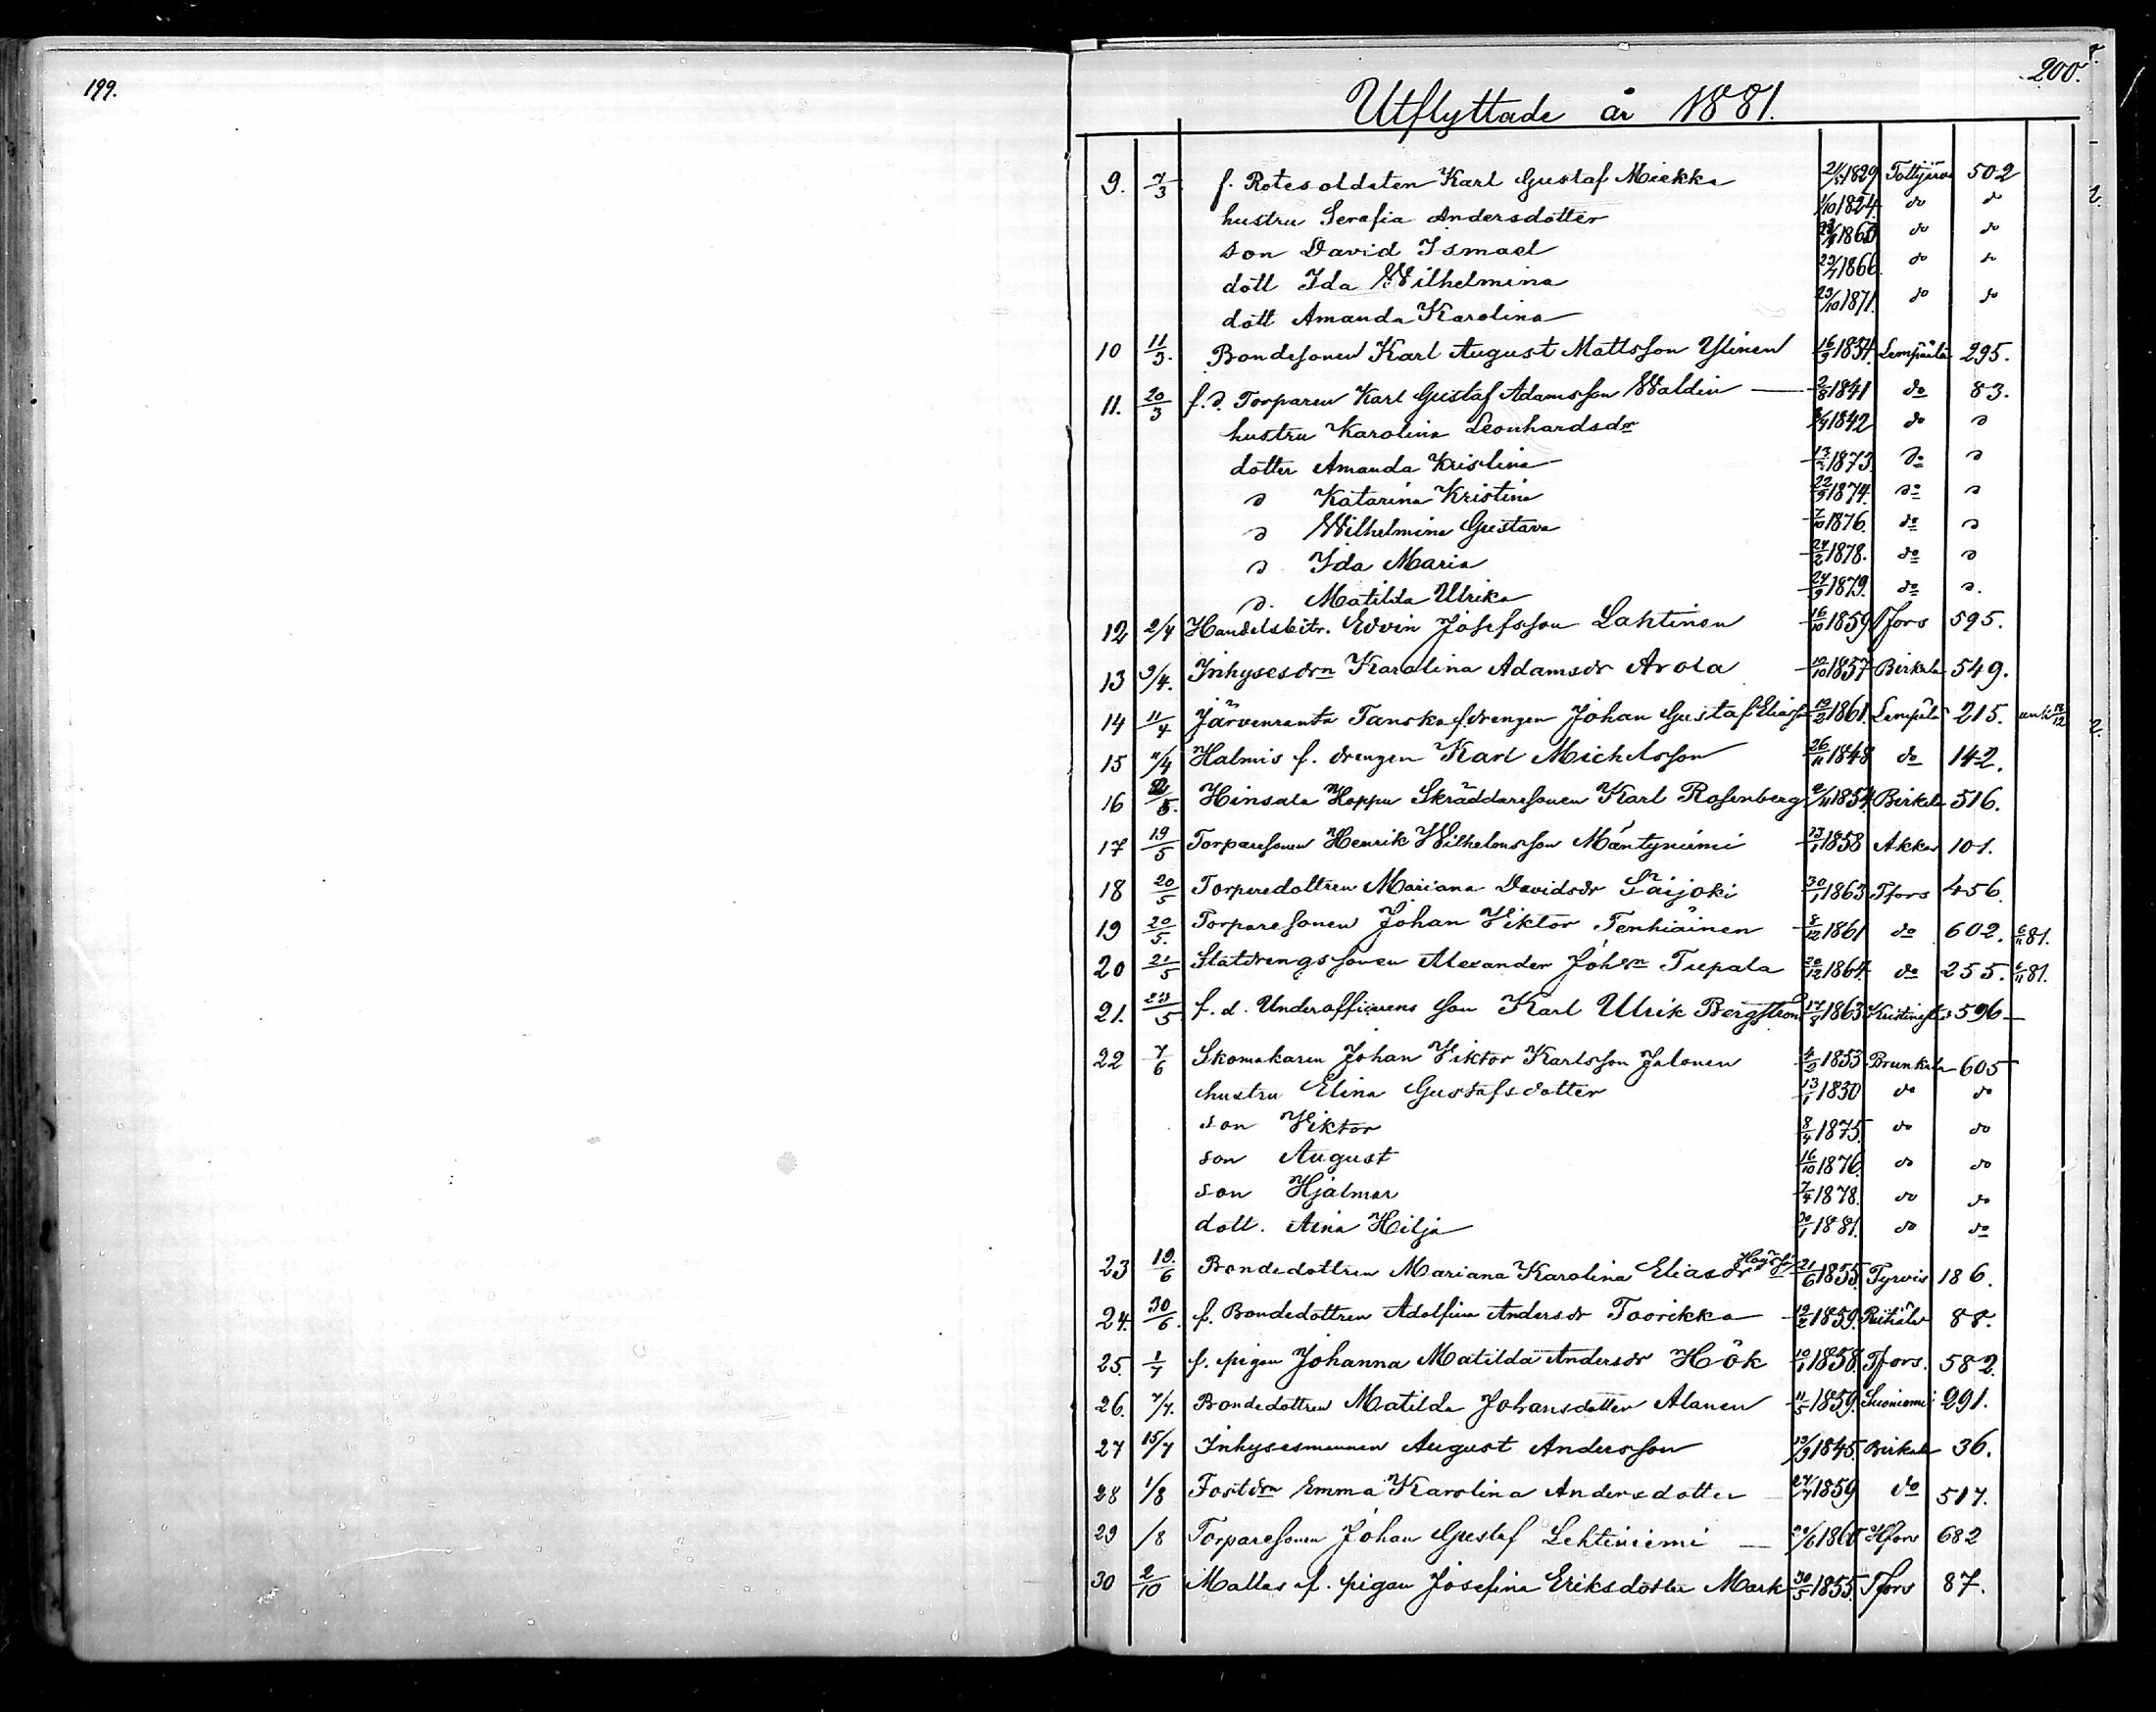 199.
200.
Utflyttade år 1881.
9. 7/3 f. Rotesoldaten Karl Gustaf Miekka 1829 Tottijärvi 502
hustru Serafia Andersdotter 1/10 1824 do do
son David Ismael do do
dott Ida Wilhelmina 1866 do do
dott Amanda Karolina 23/10 1871 do do
10 11/3. Bondesonen Karl August Mattsson Ylinen 16/9 Lempäälä 295.
11. 20/3 f.d. Torparen Karl Gustaf Adamsson Waldin 2/8 1841 do 83.
hustru Karolina Leonhardsdr 1842 do d
dotter Amanda Kristina 1873. do d
d Katarina Kristina 22/9 1874 do d
d Wilhelmina Gustava 7/10 1876. do d
d Ida Maria 24/2 1878. do d
d. Matilda Ulrika 24/9 1879. do d.
12 2/4 Handelsbitr. Edvin Josefsson Lahtinen 16/10 1859 Tfors 595.
13 9/4. Inhysesdrn Karolina Adamsdr Arola 1857 Birkala 549.
14 11/4 Järvenranta Tanska f. drengen Johan Gustaf Eliasson 1861. Lempäälä 215.
15 11/4 Halmis f. drengen Karl Michelsson 26/11 1848 do 142.
16 Hinsala Hoppu Skräddaresonen Karl Rosenberg 2/11 1854. Birkala 516.
17 19/5 Torparesonen Henrik Wilhelmsson Mäntyniemi 13/1 1858 Akkas 101.
18 20/5 Torparedottren Mariana Davidsdr Säijoki 30/1 1863 Tfors 456.
19 20/5. Torparesonen Johan Viktor Tenhiäinen 8/12 1861 do 602. 6/11 81.
20 21/5 Statdrengssonen Alexander Johsn Tupala 20/12 1864. do 255. 6/11 81.
21. 23/5 f.d. Underofficerens son Karl Ulrik Bergstrom 17/8 1863 596
22 7/6 Skomakaren Johan Viktor Karlsson Jalonen 1853 Brunkala 605
hustru Elina Gustafsdotter 13/1 1830 do do
son Viktor 8/4 1875 do do
son August 16/10 1876 do do
son Hjalmar 7/4 1878. do do
dott. Aina Hilja 30/1 1881. do do
23 19/6 Bondedottren Mariana Karolina Eliasdr 21/6 1855 Tyrvis 186.
24. 30/6. f. Bondedottren Adolfina Andersdr Toorikka 19/2 1859. 88.
25. 1/7 f. pigan Johanna Matilda Andersdr Hök 10/1 1858. Tfors. 582.
26. 7/7. Bondedottren Matilda Johansdotter Alanen 11/5 1859. Suoniemi 291.
27 15/7 Inhysesmannen August Andersson 13/9 1845. Birkala 36.
28 1/8 Fostdrn Emma Karolina Andersdotter 27/7 1859 do 517.
29 /8 Torparesonen Johan Gustaf Lehtiniemi 1860 Hfors 682
30 2/10 Mattas f. pigan Josefina Eriksdotter Mark 30/5 1855. Tfors 87.